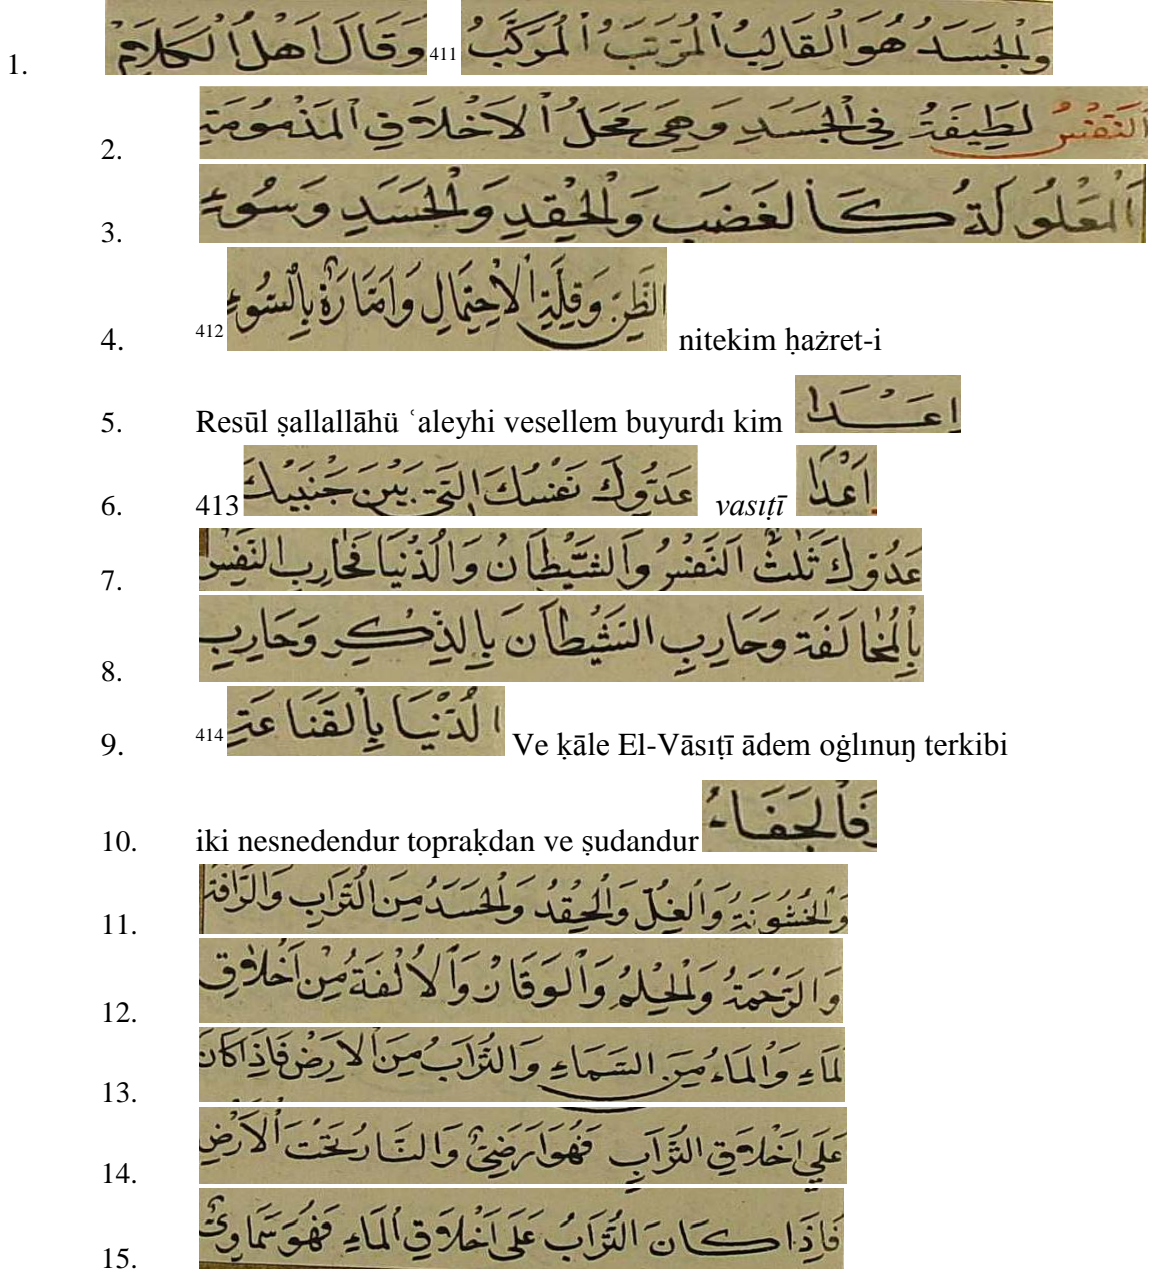 1. وَالْجَسَدُ هُوَ الْقَالِبُ الْمُرَتَّبُ الْمُرَكَّبُ 411 وَقَالَ اَهْلُ الْكَلَامِ
2. اَلنَّفْسُ لَطِيفَةٌ فِي الْجَسَدِ وَهِيَ مَحَلُّ الْاَخْلَاقِ الْمَذْمُومَةِ
3. اَلْمَعْلُولَةُ كَالْغَضَبِ وَالْحِقْدِ وَالْحَسَدِ وَسُوءِ
4. الظَّنِّ وَقِلَّةِ الْاِحْتِمَالِ وَاَمَّارَةٌ بِالسُّوءِ 412 nitekim ḥażret-i
5. Resūl ṣallallāhü ʿaleyhi vesellem buyurdı kim اعدا
6. عَدُوِّكَ نَفْسُكَ الَّتِي بَيْنَ جَنْبَيْكَ 413 vasıṭī اَعْدَا
7. عَدُوِّكَ ثَلٰثٌ اَلنَّفْسُ وَالشَّيْطَانُ وَالدُّنْيَا فَحَارِبِ النَّفْسَ
8. بِالْمُخَالَفَةِ وَحَارِبِ الشَّيْطَانَ بِالذِّكْرِ وَحَارِبِ
9. الدُّنْيَا بِالْقَنَاعَةِ 414 Ve ḳāle El-Vāsıṭī ādem oġlınuŋ terkibi
10. iki nesnedendur topraḳdan ve ṣudandur فَالْجَفَاءُ
11. وَالْخُشُونَةُ وَالْغِلُّ وَالْحِقْدُ وَالْحَسَدُ مِنَ التُّرَابِ وَالرَّافَةُ
12. وَالرَّحْمَةُ وَالْحِلْمُ وَالْوَقَارُ وَالْاُلْفَةُ مِنْ اَخْلَاقِ
13. الْمَاءِ وَالْمَاءُ مِنَ السَّمَاءِ وَالتُّرَابُ مِنَ الْاَرْضِ فَاِذَا كَانَ
14. عَلَى اَخْلَاقِ التُّرَابِ فَهُوَ اَرَضِيٌّ وَالنَّارُ تَحْتَ الْاَرْضِ
15. فَاِذَا كَانَ التُّرَابُ عَلَى اَخْلَاقِ الْمَاءِ فَهُوَ سَمَاوِيٌّ